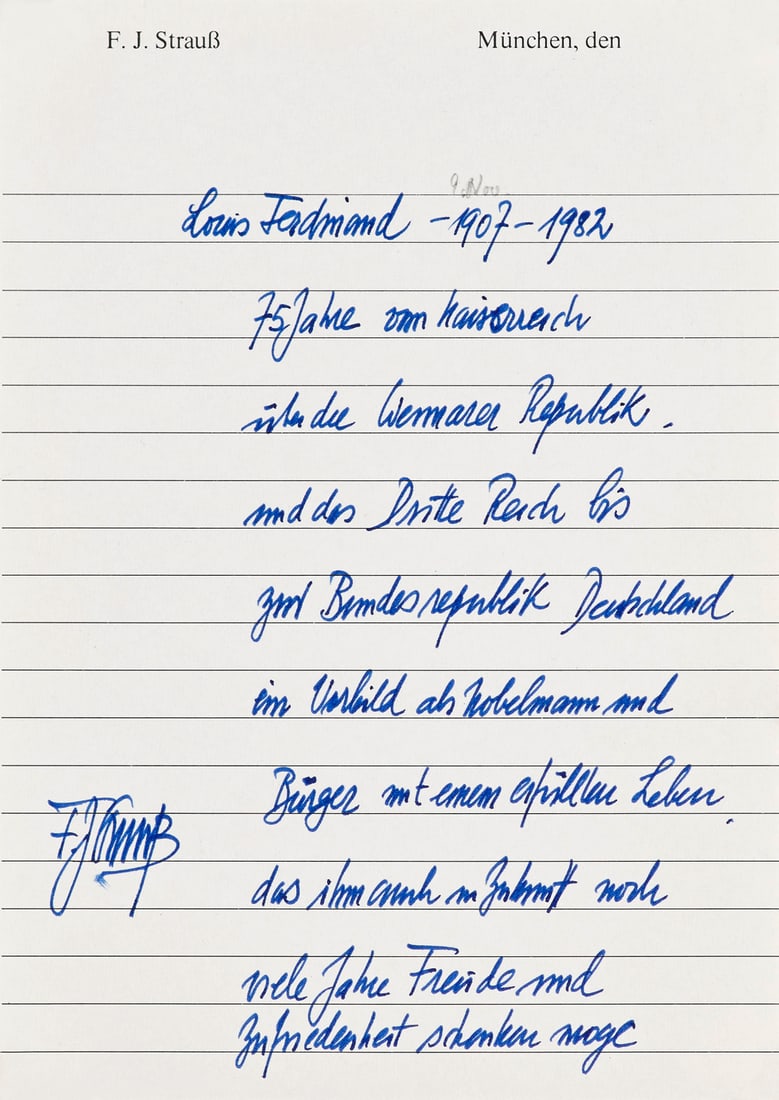 F. J. Strauß München, den
9. Nov.
Louis Ferdinand – 1907 – 1982
75 Jahre vom Kaiserreich
über die Weimarer Republik
und das Dritte Reich bis
zur Bundesrepublik Deutschland
ein Vorbild als Nobelmann und
Bürger mit einem erfüllten Leben,
das ihm auch in Zukunft noch
viele Jahre Freude und
Zufriedenheit schenken möge
FJStrauß